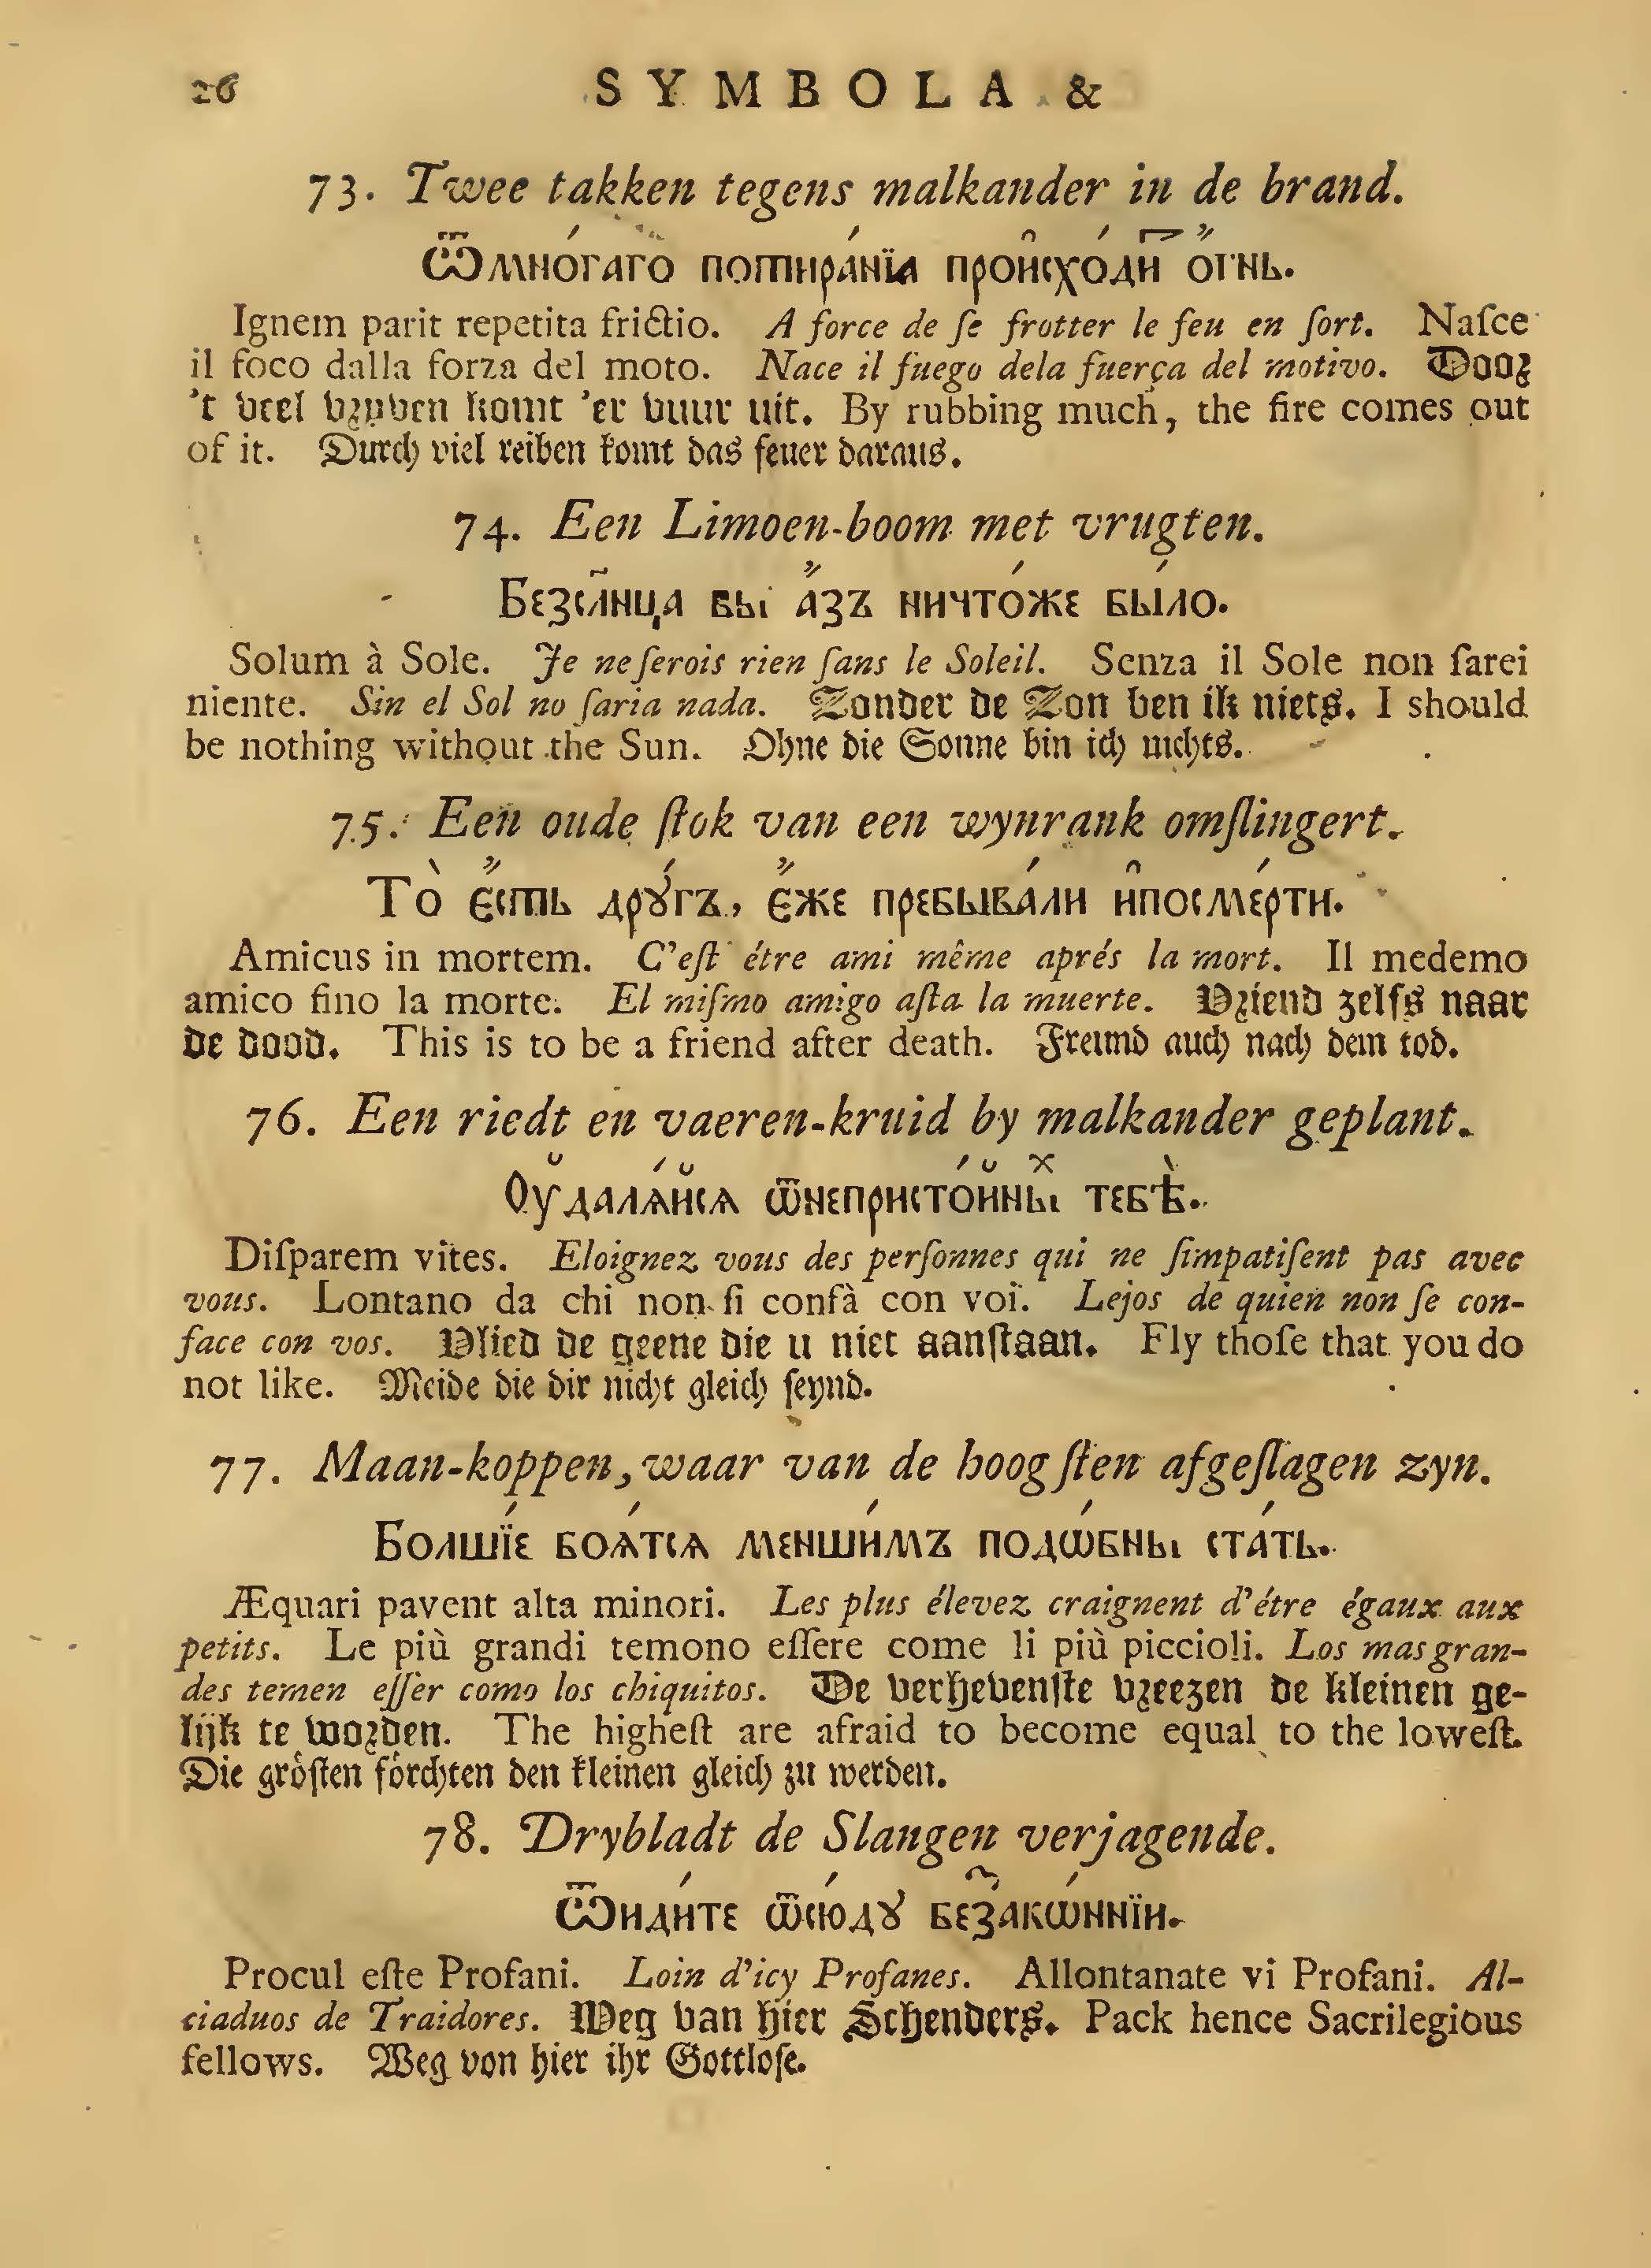 26 SYMBOLA &
73. Twee takken tegens malkander in de brand.
Ѿмно́гагѡ потира́нїѧ происхо́ди ѻ҆́гнь.
Ignem parit repetita frictio. A force de ſe frotter le feu en ſort. Naſce
il foco dalla forza del moto. Nace il fuego dela fuerça del motivo. Dooꝛ
't veel vꝛyven komt 'er vuur uit. By rubbing much, the fire comes out
of it. Durch viel reiben komt das feuer daraus.
74. Een Limoen-boom met vrugten.
Безсл҃нца бы а҆́зъ ничто́же бы́ло.
Solum à Sole. Je ne ſerois rien ſans le Soleil. Senza il Sole non ſarei
niente. Sin el Sol no ſaria nada. Zonder de Zon ben ik niets. I should
be nothing without the Sun. Ohne die Sonne bin ich nichts.
75. Een oude ſtok van een wynrank omſlingert.
То̀ є҆́сть дрꙋ́гъ, є҆́же пребыва́ли и҆посме́рти.
Amicus in mortem. C'eſt étre ami même aprés la mort. Il medemo
amico fino la morte. El miſmo amigo aſta la muerte. Vꝛiend zelfs naar
de dood. This is to be a friend after death. Freund auch nach dem tod.
76. Een riedt en vaeren-kruid by malkander geplant.
Оу҆далѧ́йсѧ ѿнепристо́йныⷯ тебѣ̀.
Diſparem vites. Eloignez vous des perſonnes qui ne ſimpatiſent pas avec
vous. Lontano da chi non ſi confà con voi. Lejos de quien non ſe con-
face con vos. Vlied de geene die u niet aanſtaan. Fly thoſe that you do
not like. Meide die dir nicht gleich ſeynd.
77. Maan-koppen, waar van de hoogſten afgeſlagen zyn.
Болші́е боѧ́тсѧ менши́мъ подѡ́бны ста́ть.
Æquari pavent alta minori. Les plus élevez craignent d'étre égaux aux
petits. Le più grandi temono eſſere come li più piccioli. Los mas gran-
des temen eſſer como los chiquitos. De verhevenſte vꝛeezen de kleinen ge-
lijk te woꝛden. The higheſt are afraid to become equal to the loweſt.
Die gröſten förchten den kleinen gleich zu werden.
78. Drybladt de Slangen verjagende.
Ѿиди́те ѿсю́дꙋ беззако́ннїи.
Procul eſte Profani. Loin d'icy Profanes. Allontanate vi Profani. Al-
ciaduos de Traidores. Weg van hier Schenders. Pack hence Sacrilegious
fellows. Weg von hier ihr Gottloſe.